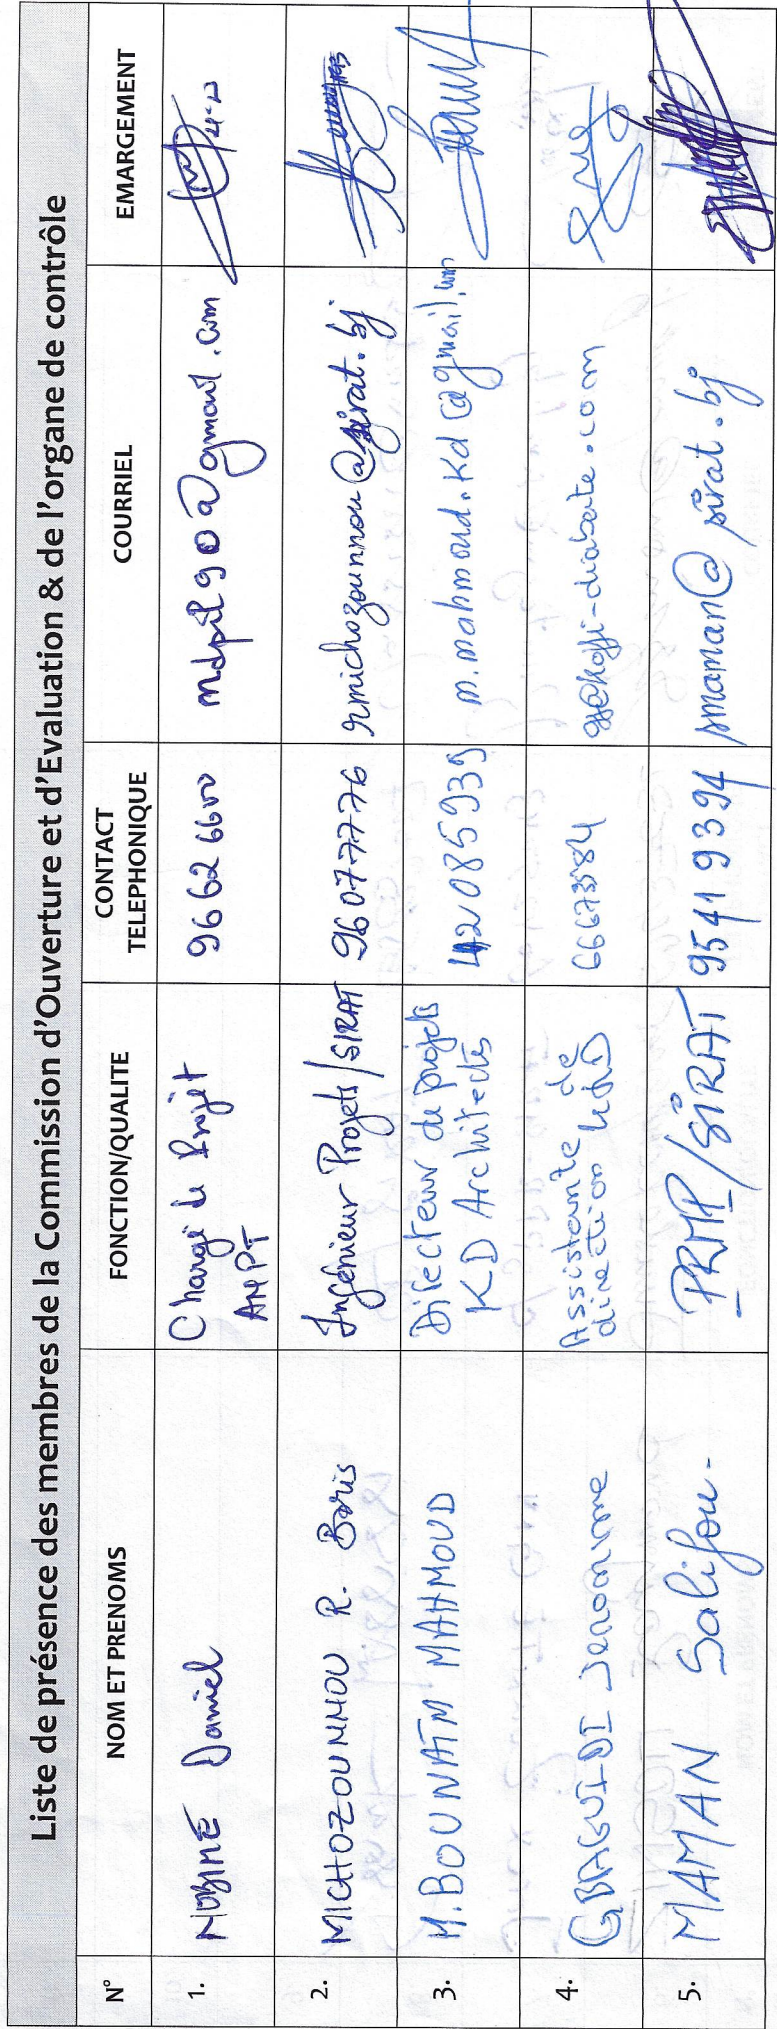 Liste de présence des membres de la Commission d'Ouverture et d'Evaluation & de l'organe de contrôle
N° NOM ET PRENOMS FONCTION/QUALITE CONTACT TELEPHONIQUE COURRIEL EMARGEMENT
1. Daniel Chargé de Projet ANPT 96626600
2. MICHOZOUNNOU R. Boris Ingénieur Projets/SIRAT 96077776 rmichozounnou@sirat.bj
3. M.BOUNAÏM MAHMOUD Directeur de projets KD Architectes 42085939 m.mahmoud.kd@gmail.com
4. GBAGUIDI Assistante de direction
5. MAMAN Salifou. PRMP/SIRAT 95419394 smaman@sirat.bj